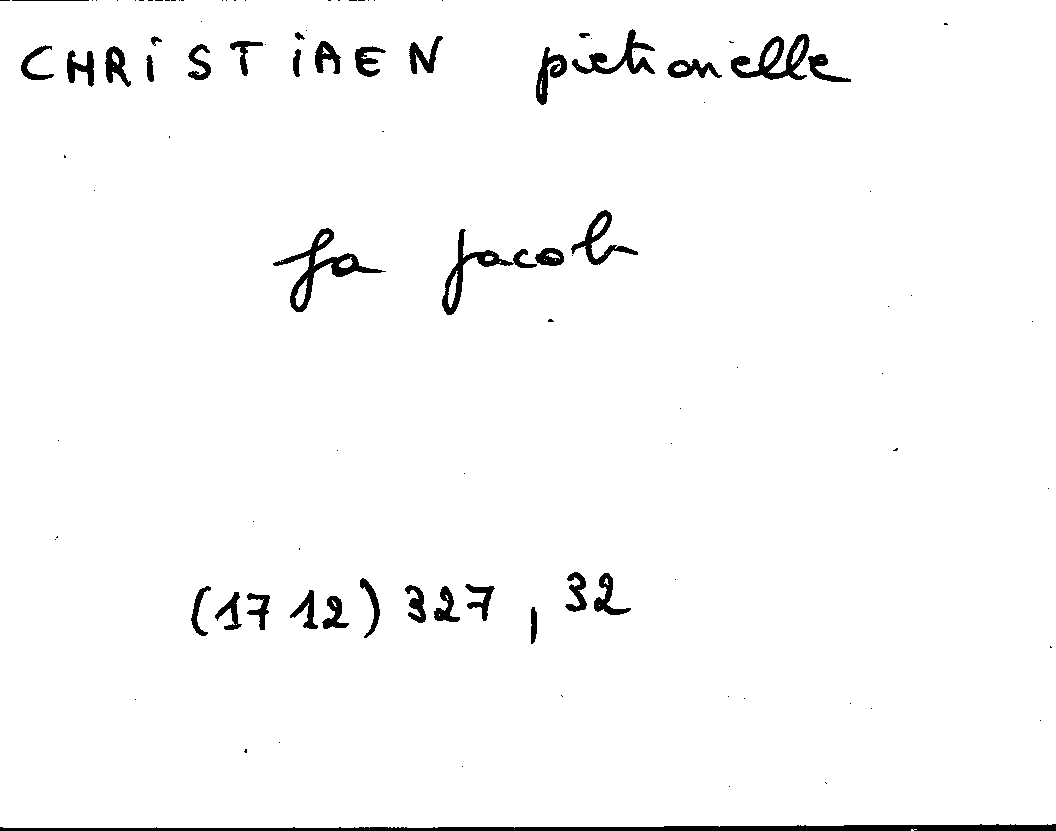 CHRISTIAEN pietronelle
fa jacob
(1712) 327, 32